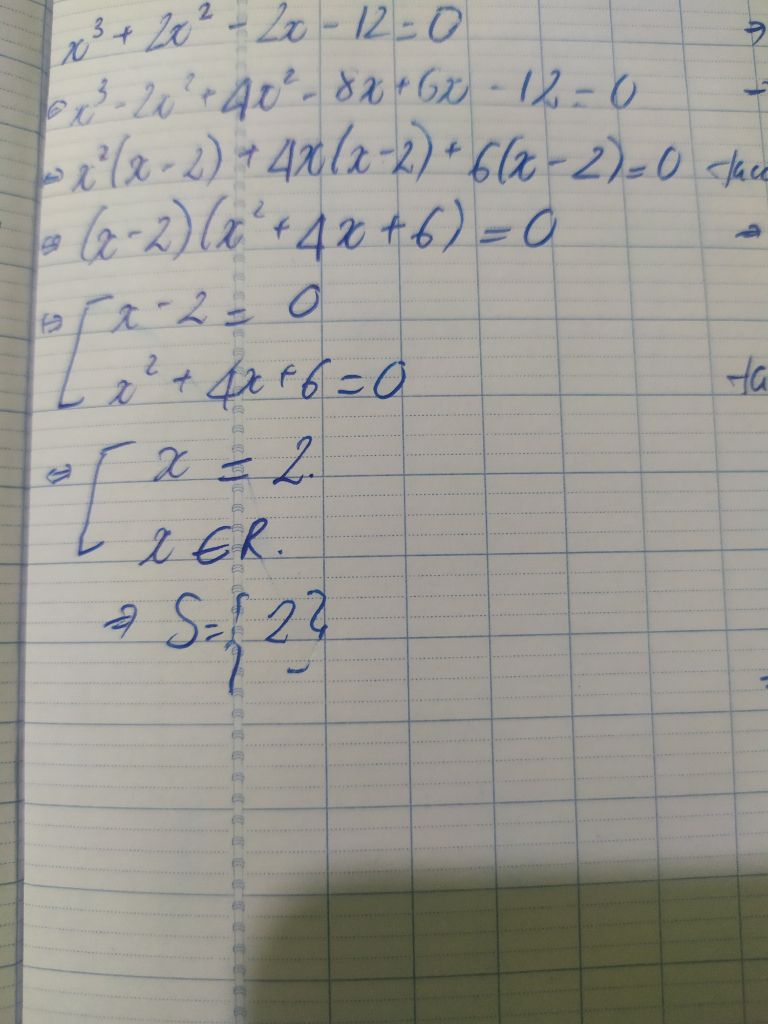 x³ + 2x² - 2x - 12 = 0
⇔ x³ - 2x² + 4x² - 8x + 6x - 12 = 0
⇔ x²(x - 2) + 4x(x - 2) + 6(x - 2) = 0
⇔ (x - 2)(x² + 4x + 6) = 0
⇔ [ x - 2 = 0
x² + 4x + 6 = 0
⇔ [ x = 2.
x ∈ R.
⇒ S = { 2 }